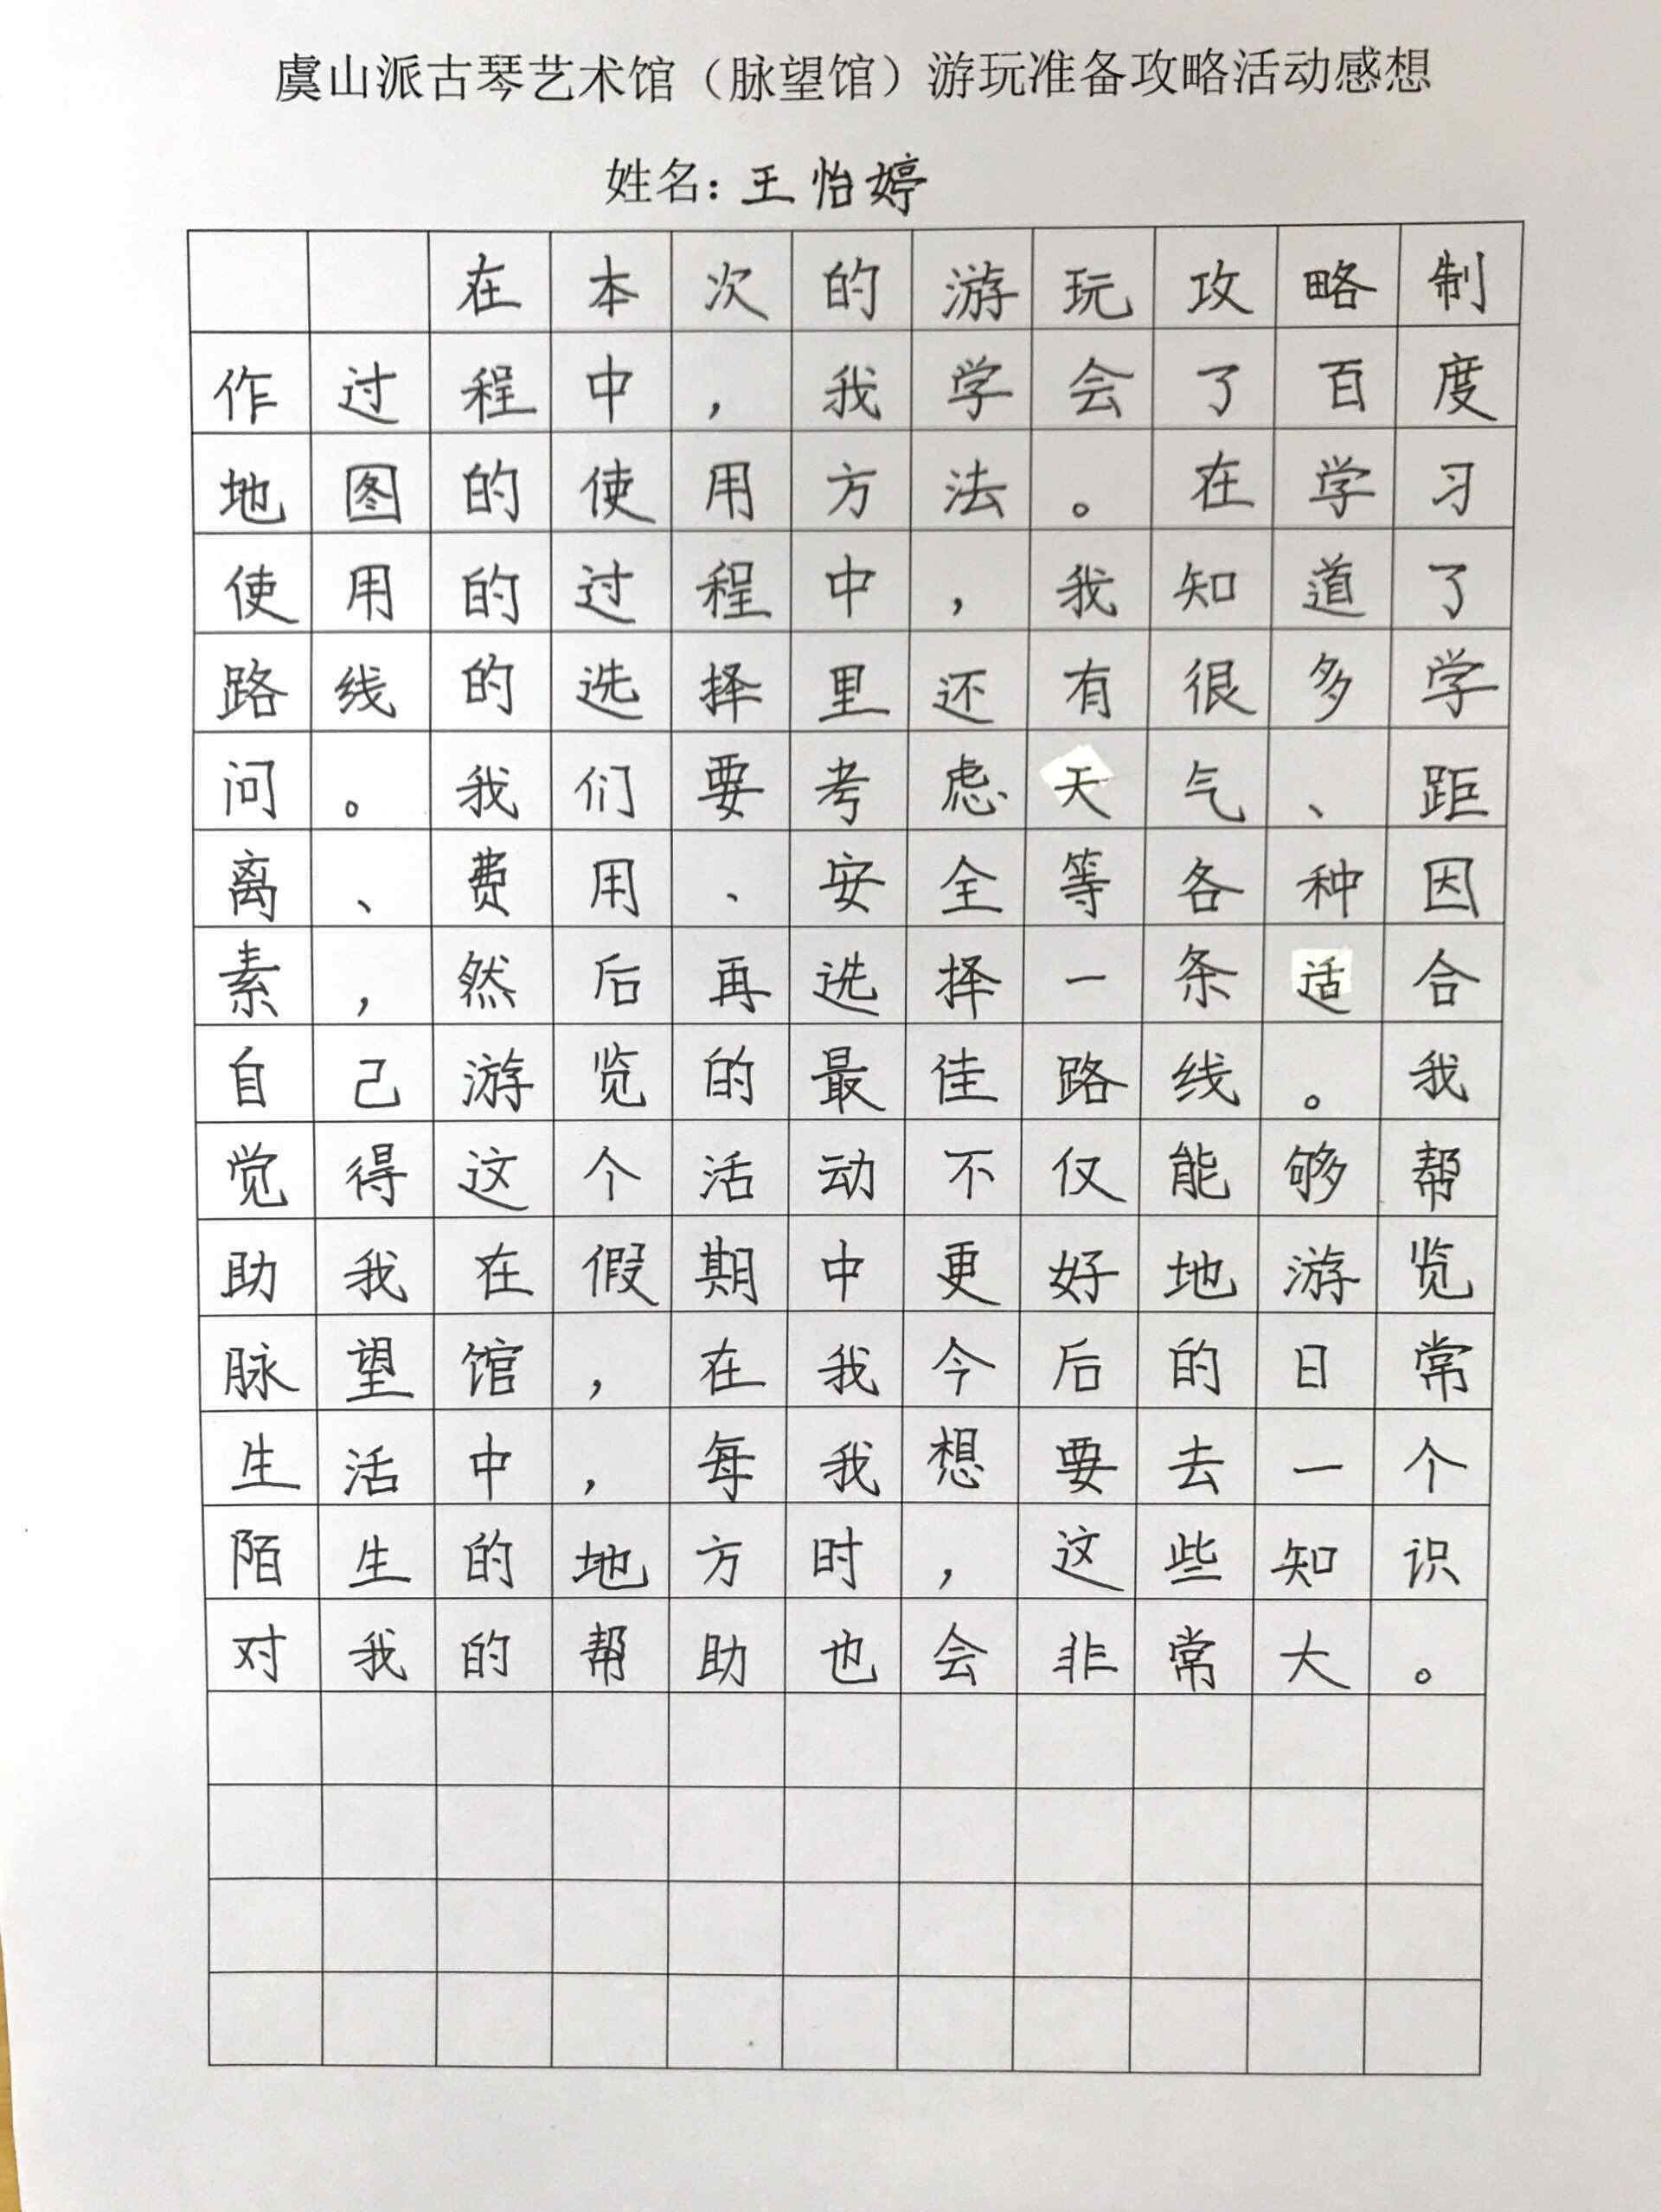 虞山派古琴艺术馆（脉望馆）游玩准备攻略活动感想
姓名：王怡婷
在本次的游玩攻略制
作过程中，我学会了百度
地图的使用方法。在学习
使用的过程中，我知道了
路线的选择里还有很多学
问。我们要考虑天气、距
离、费用、安全等各种因
素，然后再选择一条适合
自己游览的最佳路线。我
觉得这个活动不仅能够帮
助我在假期中更好地游览
脉望馆，在我今后的日常
生活中，每我想要去一个
陌生的地方时，这些知识
对我的帮助也会非常大。